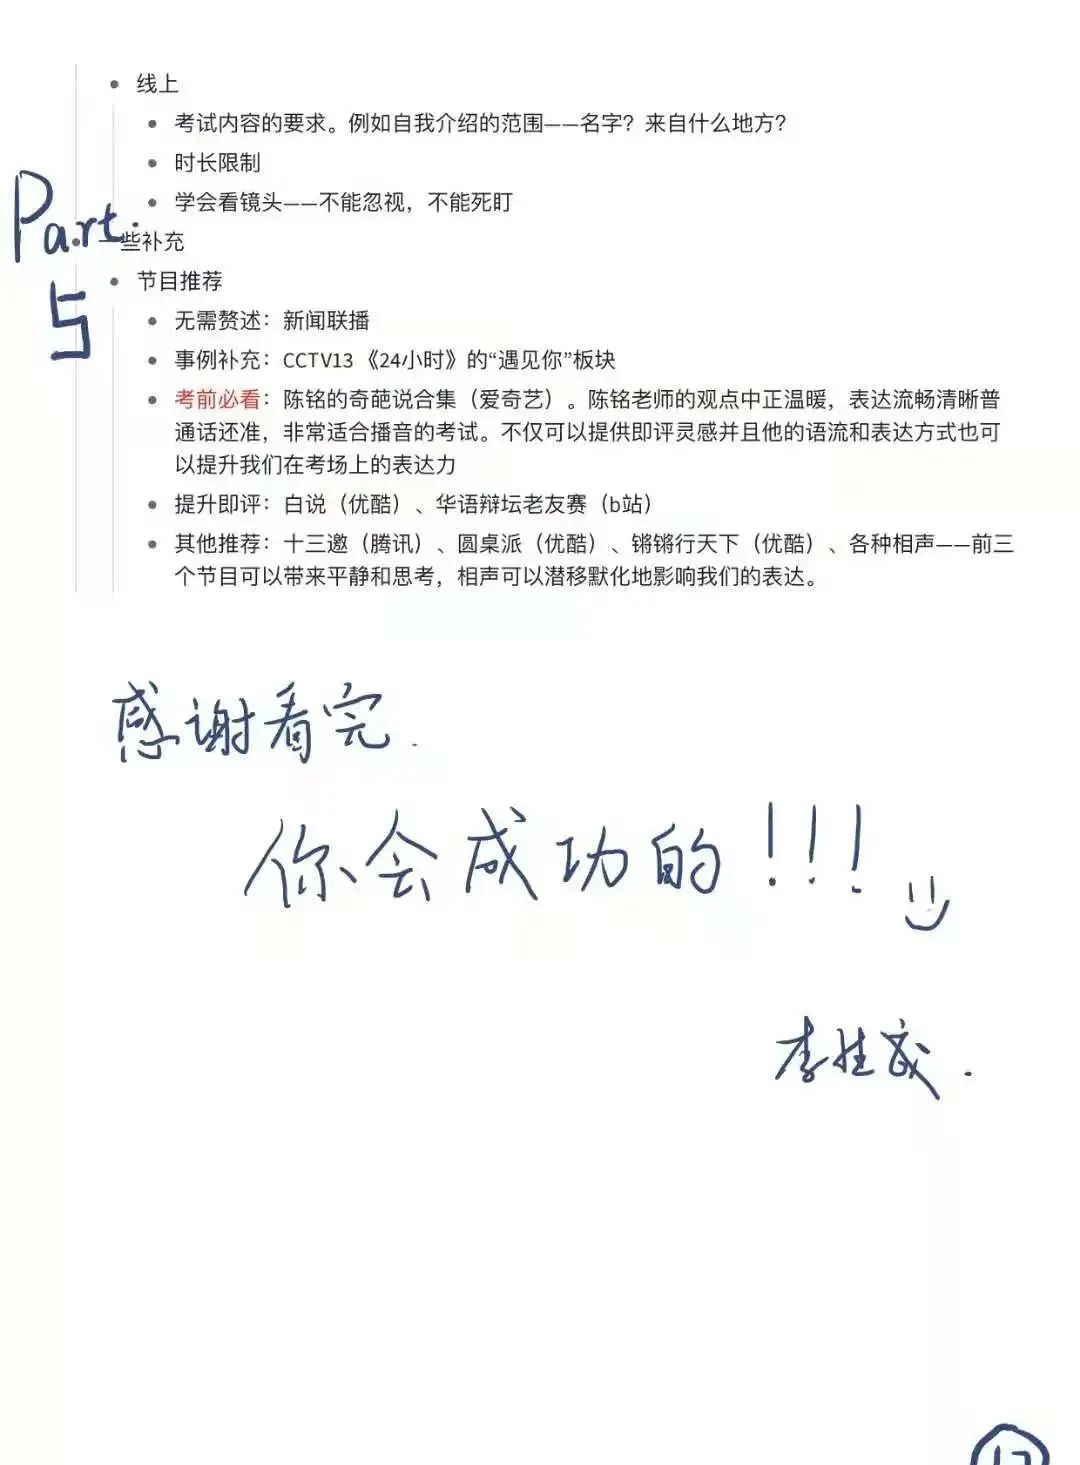 线上
考试内容的要求。例如自我介绍的范围——名字？来自什么地方？
时长限制
学会看镜头——不能忽视，不能死盯
Part.
5
一些补充
节目推荐
无需赘述：新闻联播
事例补充：CCTV13《24小时》的“遇见你”板块
考前必看：陈铭的奇葩说合集（爱奇艺）。陈铭老师的观点中正温暖，表达流畅清晰普
通话还准，非常适合播音的考试。不仅可以提供即评灵感并且他的语流和表达方式也可
以提升我们在考场上的表达力
提升即评：白说（优酷）、华语辩坛老友赛（b站）
其他推荐：十三邀（腾讯）、圆桌派（优酷）、锵锵行天下（优酷）、各种相声——前三
个节目可以带来平静和思考，相声可以潜移默化地影响我们的表达。
感谢看完.
你会成功的!!!
李胜